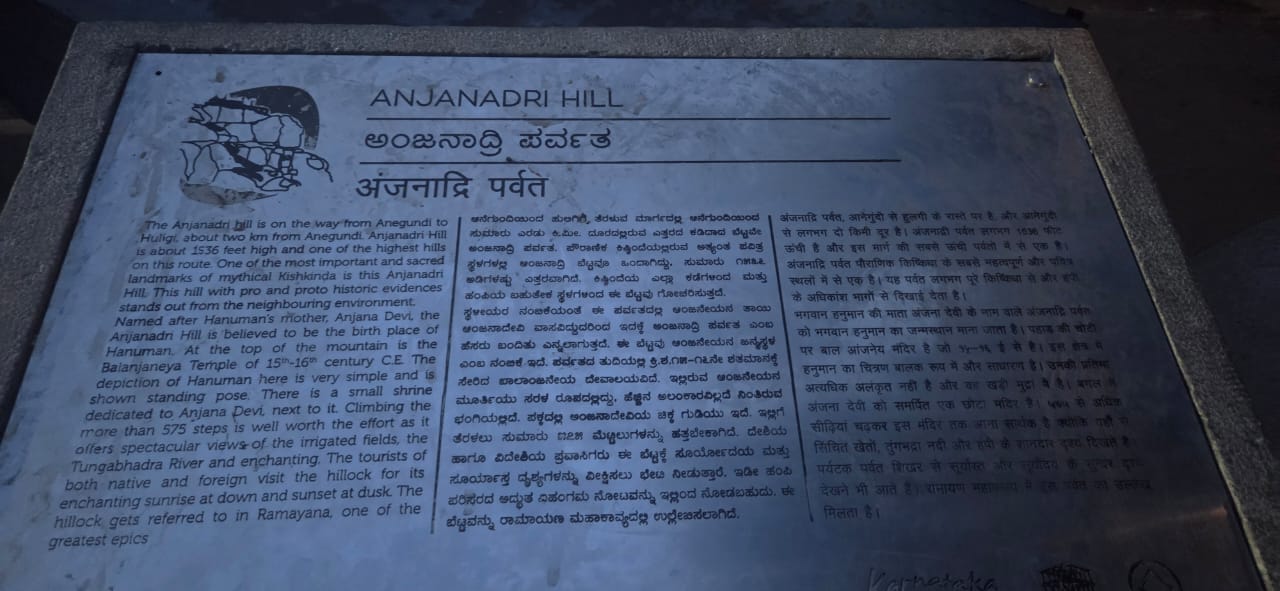 ANJANADRI HILL
ಅಂಜನಾದ್ರಿ ಪರ್ವತ
अंजनाद्रि पर्वत
The Anjanadri hill is on the way from Anegundi to
Huligi, about two km from Anegundi. Anjanadri Hill
is about 1536 feet high and one of the highest hills
on this route. One of the most important and sacred
landmarks of mythical Kishkinda is this Anjanadri
Hill. This hill with pro and proto historic evidences
stands out from the neighbouring environment.
Named after Hanuman's mother, Anjana Devi, the
Anjanadri Hill is believed to be the birth place of
Hanuman. At the top of the mountain is the
Balanjaneya Temple of 15th-16th century C.E. The
depiction of Hanuman here is very simple and is
shown standing pose. There is a small shrine
dedicated to Anjana Devi, next to it. Climbing the
more than 575 steps is well worth the effort as it
offers spectacular views of the irrigated fields, the
Tungabhadra River and enchanting. The tourists of
both native and foreign visit the hillock for its
enchanting sunrise at down and sunset at dusk. The
hillock gets referred to in Ramayana, one of the
greatest epics
ಆನೆಗುಂದಿಯಿಂದ ಹುಲಗಿಗೆ ತೆರಳುವ ಮಾರ್ಗದಲ್ಲಿ ಆನೆಗುಂದಿಯಿಂದ
ಸುಮಾರು ಎರಡು ಕಿ.ಮೀ. ದೂರದಲ್ಲಿರುವ ಎತ್ತರದ ಕಡಿದಾದ ಬೆಟ್ಟವೇ
ಅಂಜನಾದ್ರಿ ಪರ್ವತ. ಪೌರಾಣಿಕ ಕಿಷ್ಕಿಂದೆಯಲ್ಲಿರುವ ಅತ್ಯಂತ ಪವಿತ್ರ
ಸ್ಥಳಗಳಲ್ಲಿ ಅಂಜನಾದ್ರಿ ಬೆಟ್ಟವೂ ಒಂದಾಗಿದ್ದು, ಸುಮಾರು
ಅಡಿಗಳಷ್ಟು ಎತ್ತರವಾಗಿದೆ. ಕಿಷ್ಕಿಂದೆಯ ಎಲ್ಲಾ ಕಡೆಗಳಿಂದ ಮತ್ತು
ಹಂಪಿಯ ಬಹುತೇಕ ಸ್ಥಳಗಳಿಂದ ಈ ಬೆಟ್ಟವು ಗೋಚರಿಸುತ್ತದೆ.
ಸ್ಥಳೀಯರ ನಂಬಿಕೆಯಂತೆ ಈ ಪರ್ವತದಲ್ಲಿ ಆಂಜನೇಯನ ತಾಯಿ
ಅಂಜನಾದೇವಿ ವಾಸವಿದ್ದುದರಿಂದ ಇದಕ್ಕೆ ಅಂಜನಾದ್ರಿ ಪರ್ವತ ಎಂಬ
ಹೆಸರು ಬಂದಿತು ಎನ್ನಲಾಗುತ್ತದೆ. ಈ ಬೆಟ್ಟವು ಆಂಜನೇಯನ ಜನ್ಮಸ್ಥಳ
ಎಂಬ ನಂಬಿಕೆ ಇದೆ. ಪರ್ವತದ ತುದಿಯಲ್ಲಿ ಕ್ರಿ.ಶ.೧೫-೧೬ನೇ ಶತಮಾನಕ್ಕೆ
ಸೇರಿದ ಬಾಲಾಂಜನೇಯ ದೇವಾಲಯವಿದೆ. ಇಲ್ಲಿರುವ ಆಂಜನೇಯನ
ಮೂರ್ತಿಯು ಸರಳ ರೂಪದಲ್ಲಿದ್ದು, ಹೆಚ್ಚಿನ ಅಲಂಕಾರವಿಲ್ಲದೆ ನಿಂತಿರುವ
ಭಂಗಿಯಲ್ಲಿದೆ. ಪಕ್ಕದಲ್ಲಿ ಅಂಜನಾದೇವಿಯ ಚಿಕ್ಕ ಗುಡಿಯು ಇದೆ. ಇಲ್ಲಿಗೆ
ತೆರಳಲು ಸುಮಾರು ಮೆಟ್ಟಿಲುಗಳನ್ನು ಹತ್ತಬೇಕಾಗಿದೆ. ದೇಶೀಯ
ಹಾಗೂ ವಿದೇಶಿಯ ಪ್ರವಾಸಿಗರು ಈ ಬೆಟ್ಟಕ್ಕೆ ಸೂರ್ಯೋದಯ ಮತ್ತು
ಸೂರ್ಯಾಸ್ತ ದೃಶ್ಯಗಳನ್ನು ವೀಕ್ಷಿಸಲು ಭೇಟಿ ನೀಡುತ್ತಾರೆ. ಇಡೀ ಹಂಪಿ
ಪರಿಸರದ ಅದ್ಭುತ ವಿಹಂಗಮ ನೋಟವನ್ನು ಇಲ್ಲಿಂದ ನೋಡಬಹುದು. ಈ
ಬೆಟ್ಟವನ್ನು ರಾಮಾಯಣ ಮಹಾಕಾವ್ಯದಲ್ಲಿ ಉಲ್ಲೇಖಿಸಲಾಗಿದೆ.
अंजनाद्रि पर्वत, आनेगुंदी से हुलगी के रास्ते पर है, और आनेगुंदी
से लगभग दो किमी दूर है। अंजनाद्री पर्वत लगभग 1536 फीट
ऊंची है और इस मार्ग की सबसे ऊंची पर्वतों में से एक है।
अंजनाद्रि पर्वत पौराणिक किष्किंधा के सबसे महत्वपूर्ण और पवित्र
स्थलों में से एक है। यह पर्वत लगभग पूरे किष्किंधा से और हंपी
के अधिकांश भागों से दिखाई देता है।
भगवान हनुमान की माता अंजना देवी के नाम वाले अंजनाद्रि पर्वत
को भगवान हनुमान का जन्मस्थान माना जाता है। पहाड़ की चोटी
पर बाल आंजनेय मंदिर है जो १५-१६ ई से है। इस क्षेत्र में
हनुमान का चित्रण बालक रूप में और साधारण है। उनकी प्रतिमा
अत्यधिक अलंकृत नही है और वह खड़ी मुद्रा में है। बगल में
अंजना देवी को समर्पित एक छोटा मंदिर है। ५७५ से अधिक
सीढ़ियां चढ़कर इस मंदिर तक आना सार्थक है क्योंकि यहाँ से
सिंचित खेतों, तुंगभद्रा नदी और हंपी के शानदार दृश्य दिखते है
पर्यटक पर्वत शिखर से सूर्यास्त और सूर्योदय के सुन्दर दृश्य
देखने भी आते है। रामायण महाकाव्य में इस पर्वत का उल्लेख
मिलता है।
Karnataka